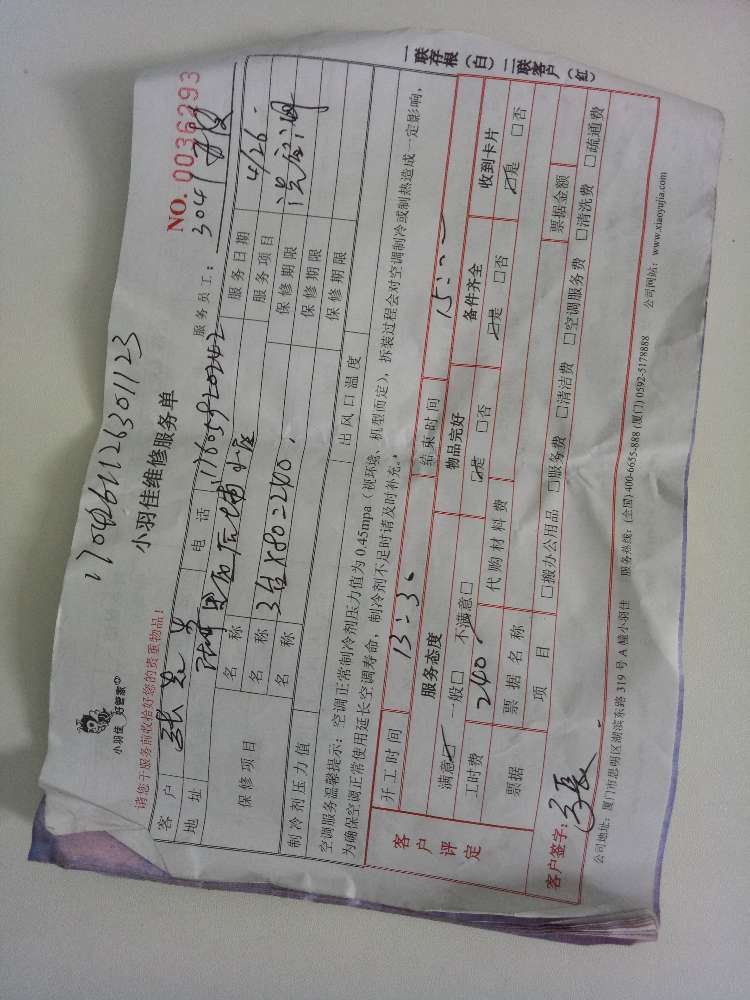 一联存根（白）二联客户（红）
17042611126301123
NO. 0036293
小羽佳 好管家
小羽佳维修服务单
请您于服务前收拾好您的贵重物品！
服务员工：3041
客户 张 电话
服务日期 4/26
地址
服务项目 洗空调
保修项目 名称 保修期限
名称 3台×80=240. 保修期限
名称 保修期限
制冷剂压力值 出风口温度
空调服务温馨提示：空调正常制冷剂压力值为 0.45mpa（视环境、机型而定），拆装过程会对空调制冷或制热造成一定影响，
为确保空调正常使用延长空调寿命，制冷剂不足时请及时补充。
开工时间 13:30 结束时间 15:
客户评定
服务态度 物品完好 备件齐全 收到卡片
满意☑ 一般□ 不满意□ ☑是 □否 ☑是 □否 ☑是 □否
工时费 240 代购材料费
票据 票据名称 票据金额
项目 □搬办公用品 □服务费 □清洁费 □空调服务费 □清洗费 □疏通费
客户签字：
公司地址：厦门市思明区湖滨东路 319 号 A 幢小羽佳 服务热线：(全国) 400-6655-888 (厦门) 0592-5178888 公司网站：www.xiaoyujia.com